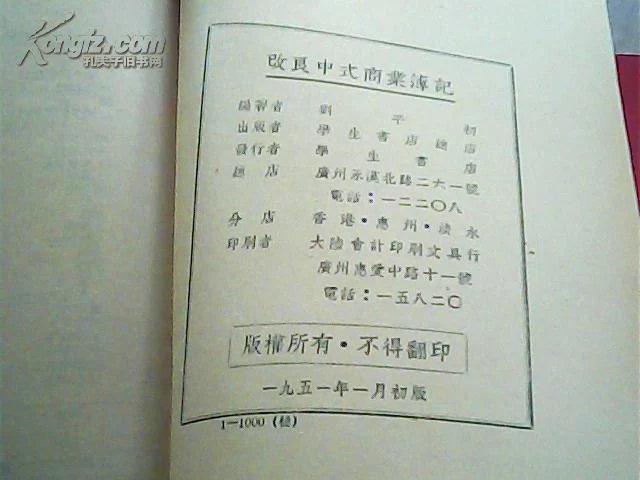 Kongfz.com
孔夫子旧书网
改良中式商業簿記
編著者 劉平初
出版者 學生書店總店
發行者 學生書店
總店 廣州永漢北路二六一號
電話：一二二〇八
分店 香港・惠州・淡水
印刷者 大陸會計印刷文具行
廣州惠愛中路十一號
電話：一五八二〇
版權所有・不得翻印
一九五一年一月初版
1—1000（穗）